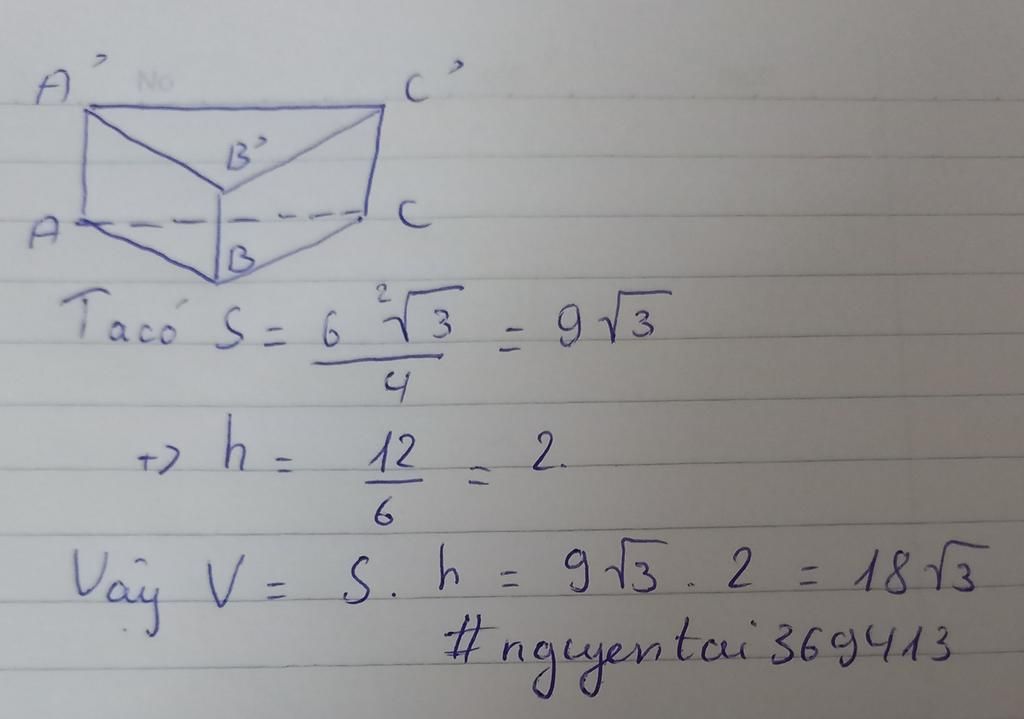 A' C'
B'
A C
B
Ta có S = 6²√3/4 = 9√3
+> h = 12/6 = 2.
Vậy V = S. h = 9√3 . 2 = 18√3
#nguyentai369413